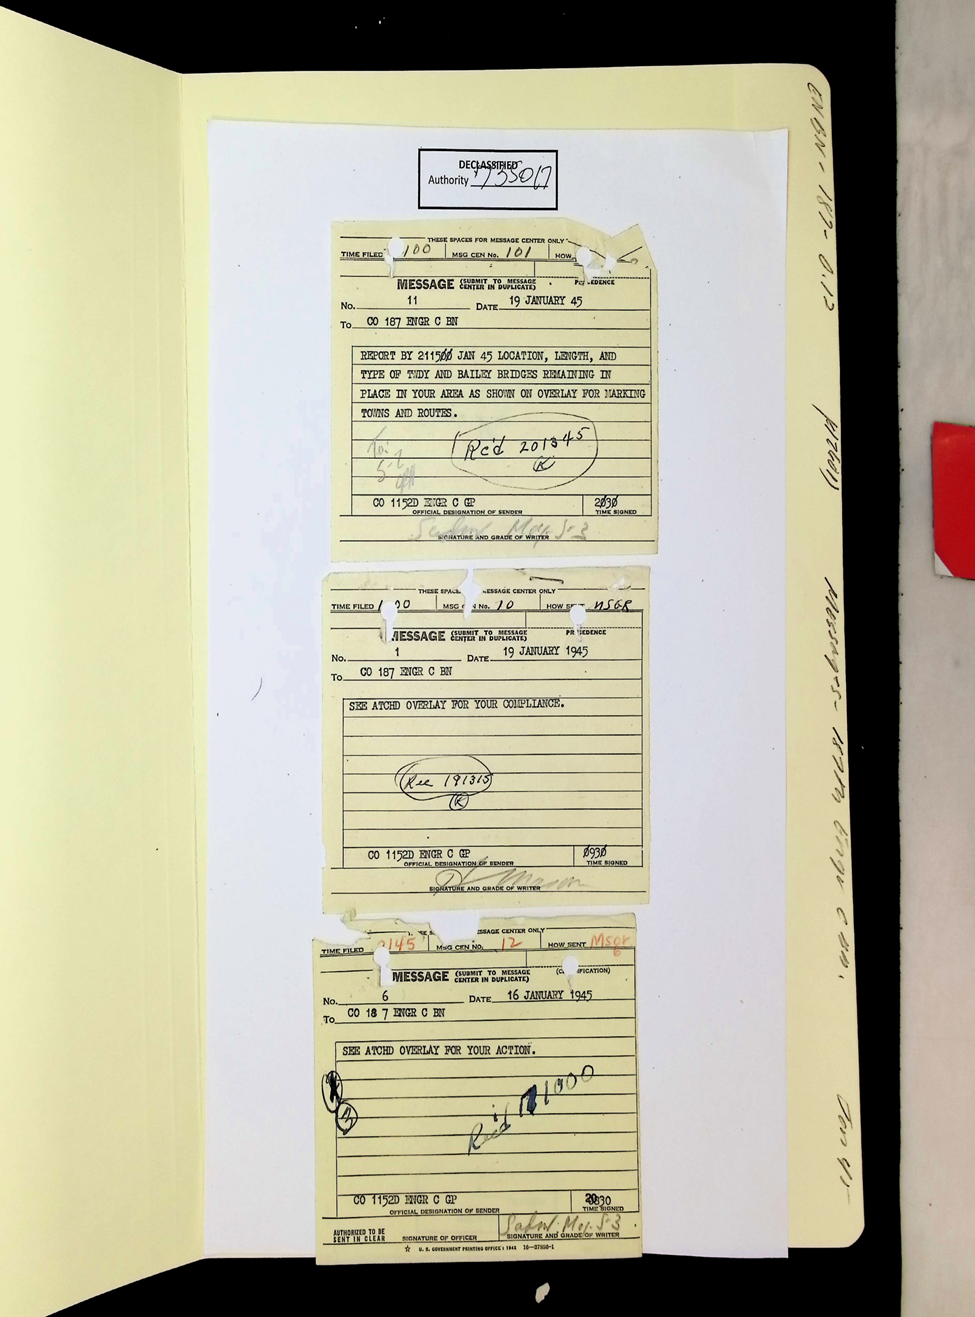 DECLASSIFIED
Authority 735017
THESE SPACES FOR MESSAGE CENTER ONLY
TIME FILED 100 MSG CEN No. 101 HOW
MESSAGE (SUBMIT TO MESSAGE CENTER IN DUPLICATE) PRECEDENCE
No. 11 DATE 19 JANUARY 45
To CO 187 ENGR C BN
REPORT BY 211500 JAN 45 LOCATION, LENGTH, AND
TYPE OF TWDY AND BAILEY BRIDGES REMAINING IN
PLACE IN YOUR AREA AS SHOWN ON OVERLAY FOR MARKING
TOWNS AND ROUTES.
Rec'd 201345
To:
S-2
CO 1152D ENGR C GP 2030
OFFICIAL DESIGNATION OF SENDER TIME SIGNED
Maj. S-3
SIGNATURE AND GRADE OF WRITER
THESE SPACES MESSAGE CENTER ONLY
TIME FILED 1 00 MSG CEN No. 10 HOW SENT MSGR
MESSAGE (SUBMIT TO MESSAGE CENTER IN DUPLICATE) PRECEDENCE
No. 1 DATE 19 JANUARY 1945
To CO 187 ENGR C BN
SEE ATCHD OVERLAY FOR YOUR COMPLIANCE.
Rec 191315
CO 1152D ENGR C GP 0930
OFFICIAL DESIGNATION OF SENDER TIME SIGNED
SIGNATURE AND GRADE OF WRITER
MESSAGE CENTER ONLY
TIME FILED 2145 MSG CEN No. 12 HOW SENT Msgr
MESSAGE (SUBMIT TO MESSAGE CENTER IN DUPLICATE) (CLASSIFICATION)
No. 6 DATE 16 JANUARY 1945
To CO 18 7 ENGR C BN
SEE ATCHD OVERLAY FOR YOUR ACTION.
3
Rec'd 171000
CO 1152D ENGR C GP 2030
OFFICIAL DESIGNATION OF SENDER TIME SIGNED
Maj. S-3
AUTHORIZED TO BE SENT IN CLEAR SIGNATURE OF OFFICER SIGNATURE AND GRADE OF WRITER
☆ U. S. GOVERNMENT PRINTING OFFICE : 1942 16—27850-1
ENBN - 187 - 0.13
Messages - 187th Engr C Bn.